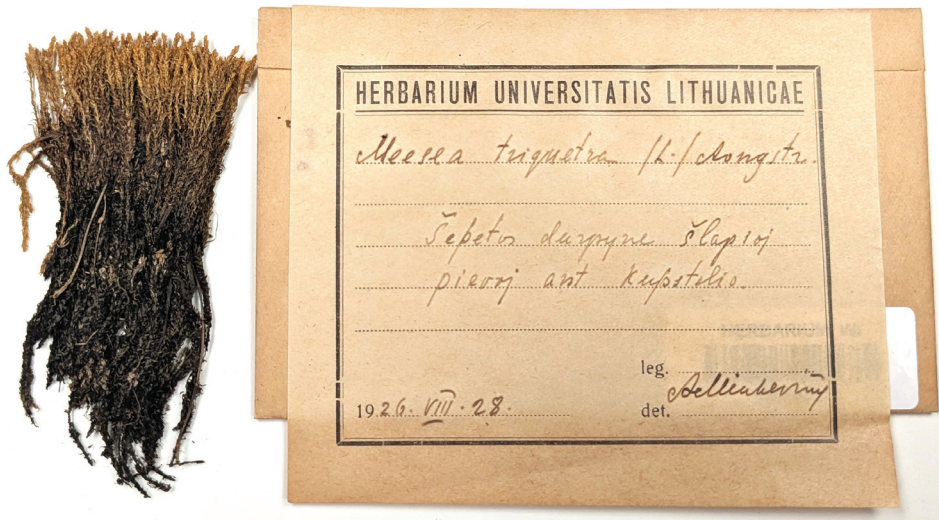 HERBARIUM UNIVERSITATIS LITHUANICAE
Meesea triquetra /L./ Aongstr.
Šepetos durpyne šlapioj
pievoj ant kupstelio.
leg.
1926. VIII. 28.
det.